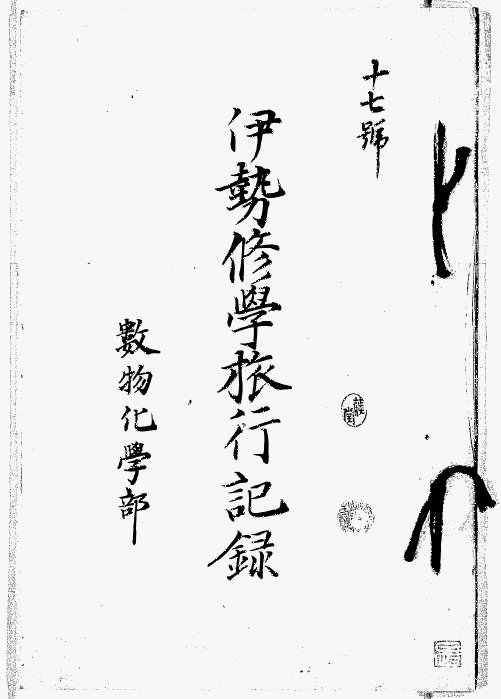 十七號
伊勢修學旅行記録
數物化學部